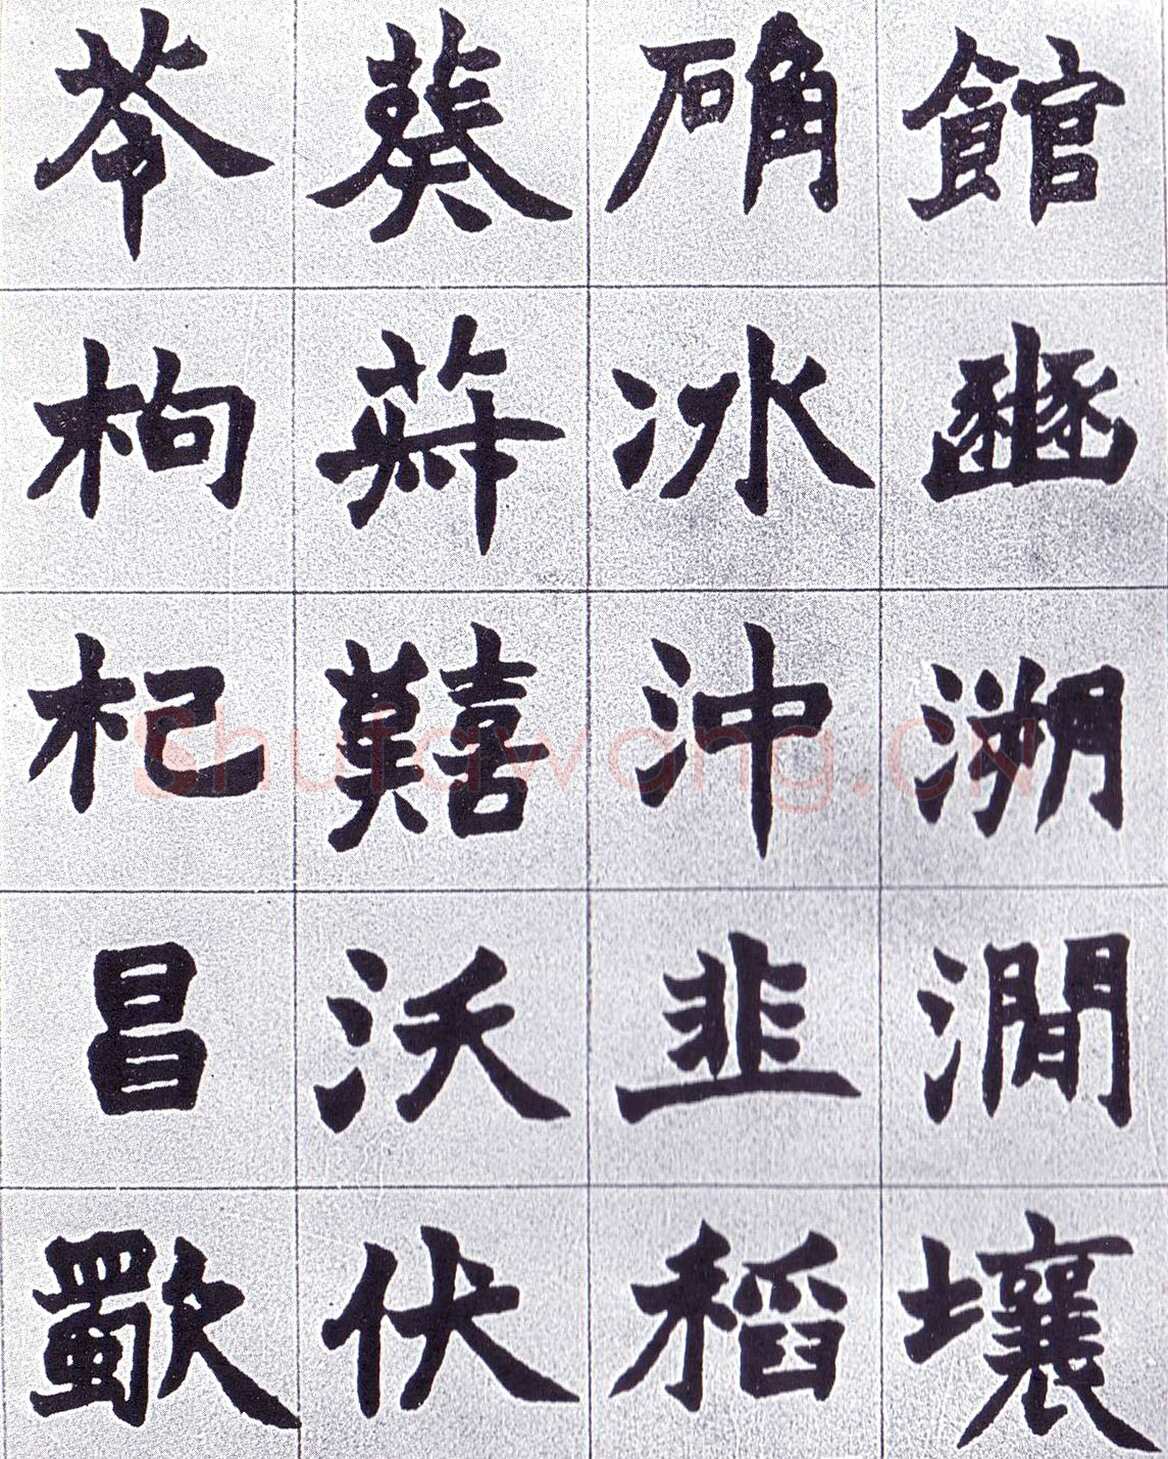 館豳溯澗壤
确冰沖韭稻
葵囏沃伏
苓枸杞昌歜
Shufawang.CN